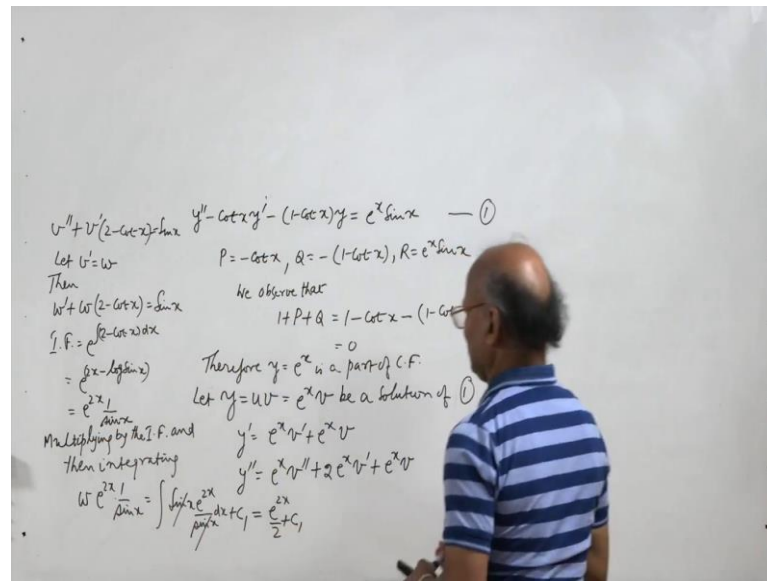 v'' + v'(2-cot x) = sin x
Let v' = w
Then
w' + w(2-cot x) = sin x
I.F. = e^∫(2-cot x)dx
= e^(2x - log sin x)
= e^2x 1/sin x
Multiplying by the I.F. and
then integrating
w e^2x 1/sin x = ∫ sin x e^2x/sin x dx + C₁ = e^2x/2 + C₁
y'' - cot x y' - (1-cot x)y = e^x sin x — ①
P = -cot x, Q = -(1-cot x), R = e^x sin x
We observe that
1+P+Q = 1 - cot x - (1-cot
= 0
Therefore y = e^x is a part of C.F.
Let y = uv = e^x v be a solution of ①
y' = e^x v' + e^x v
y'' = e^x v'' + 2e^x v' + e^x v